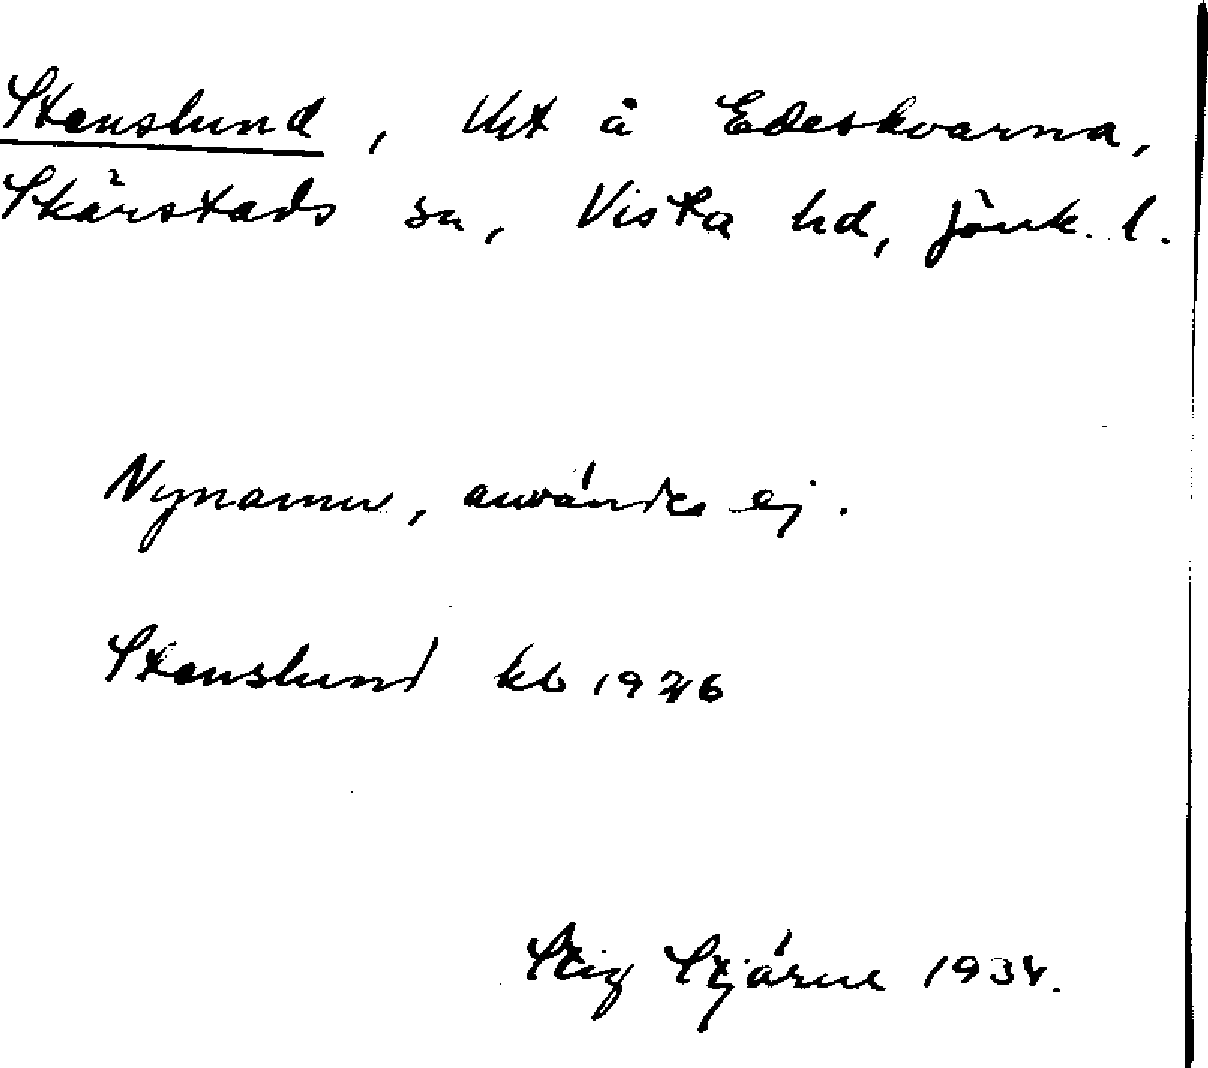 Stenslund, lht å Edeskvarna,
Skärstads sn, Vista hd, Jönk. l.
Nynamn, användes ej.
Stenslund kb 1926
Stig Stjärne 1934.